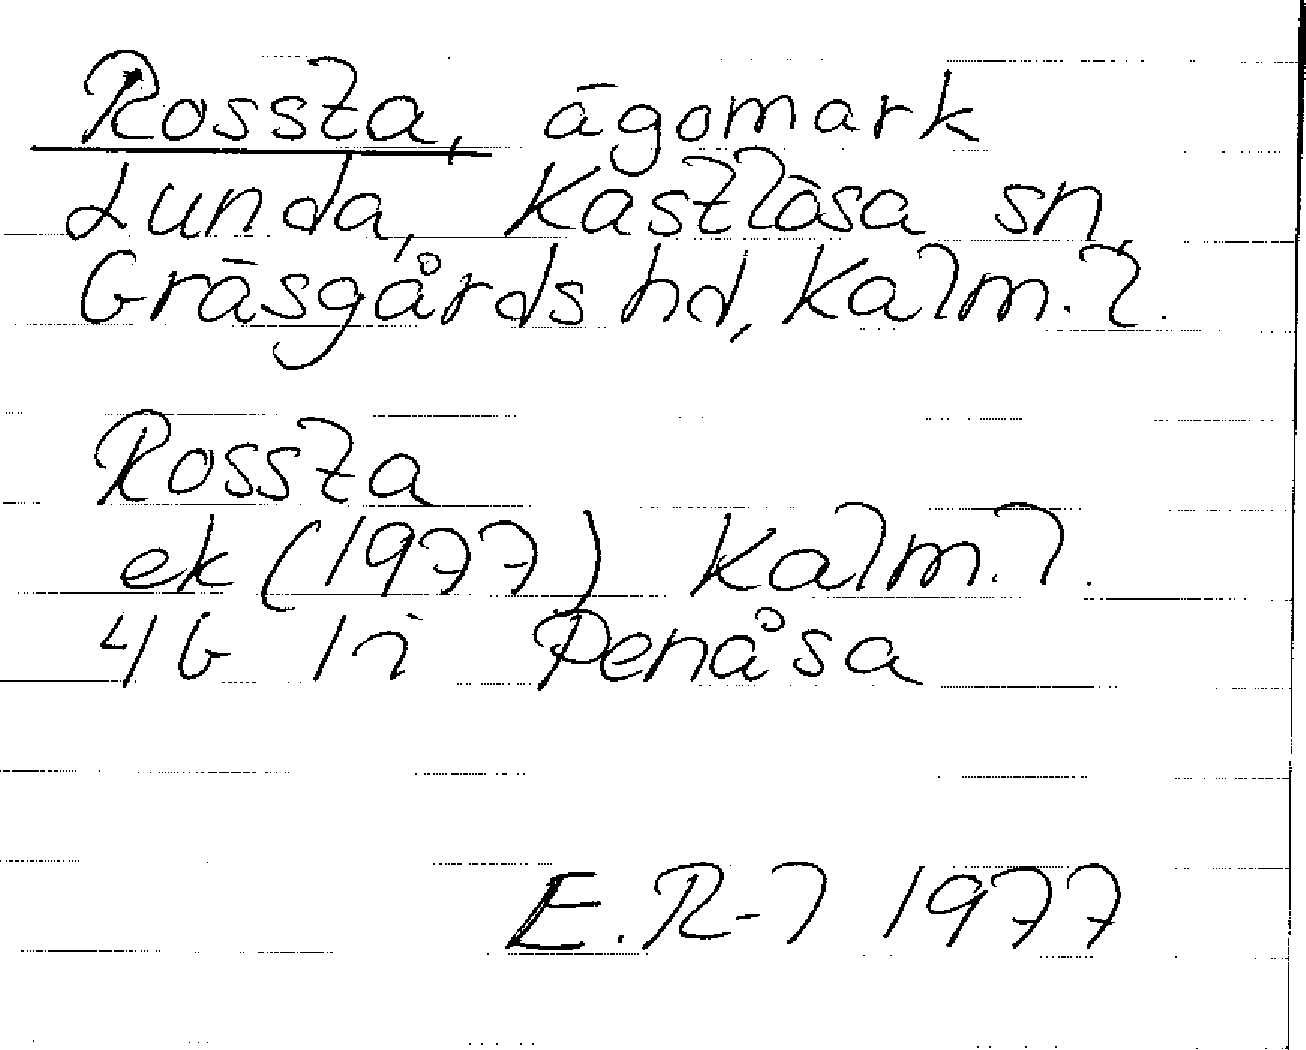 Rossta, ägomark
Lunda, Kastlösa sn,
Gräsgårds hd, Kalm. l.
Rossta
ek (1977) Kalm. l.
4G 1i Penåsa
E.R-l 1977